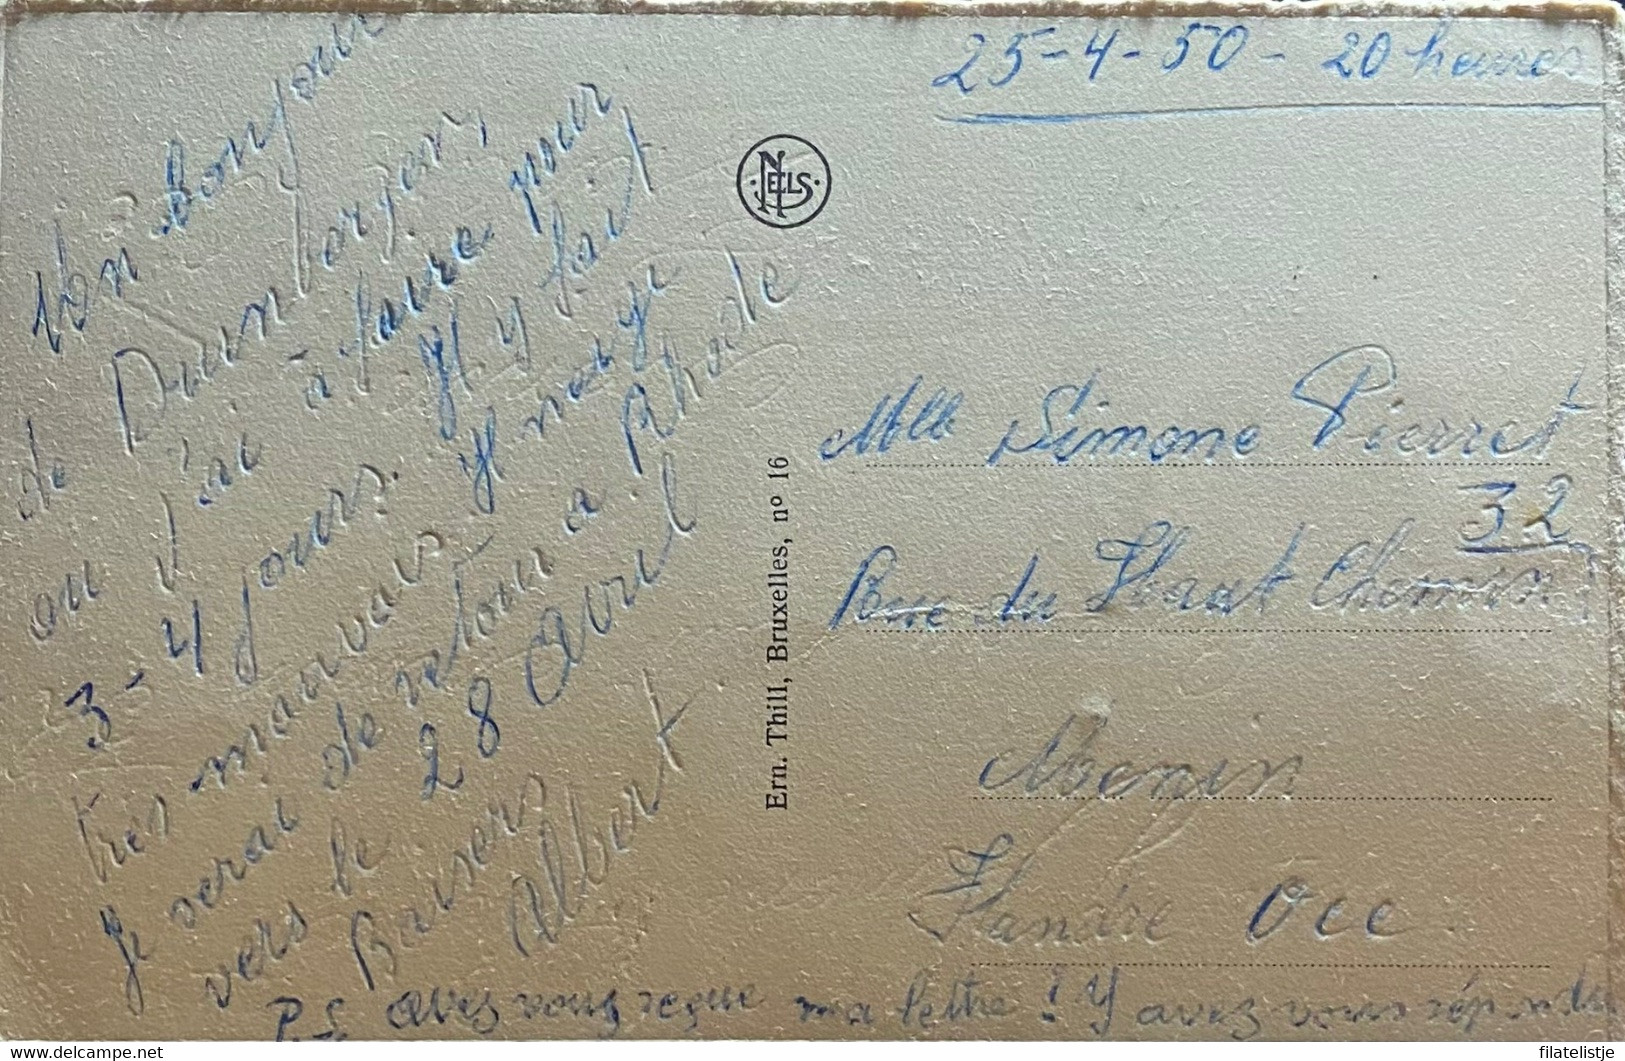 25-4-50 - 20 heures
Un bonjour
de
ou j'ai à faire pour
3-4 jours. Il y fait
très mauvais. Il neige
Je serai de retour a Rhode
vers le 28 Avril
Baisers
Albert.
NELS
Ern. Thill, Bruxelles, nº 16
Mlle Simone Pierret
32
Rue du Haut Chemin
Menin
Flandre Occ.
P.S. avez vous reçue ma lettre! Y avez vous répondu
© filatelistje
www.delcampe.net